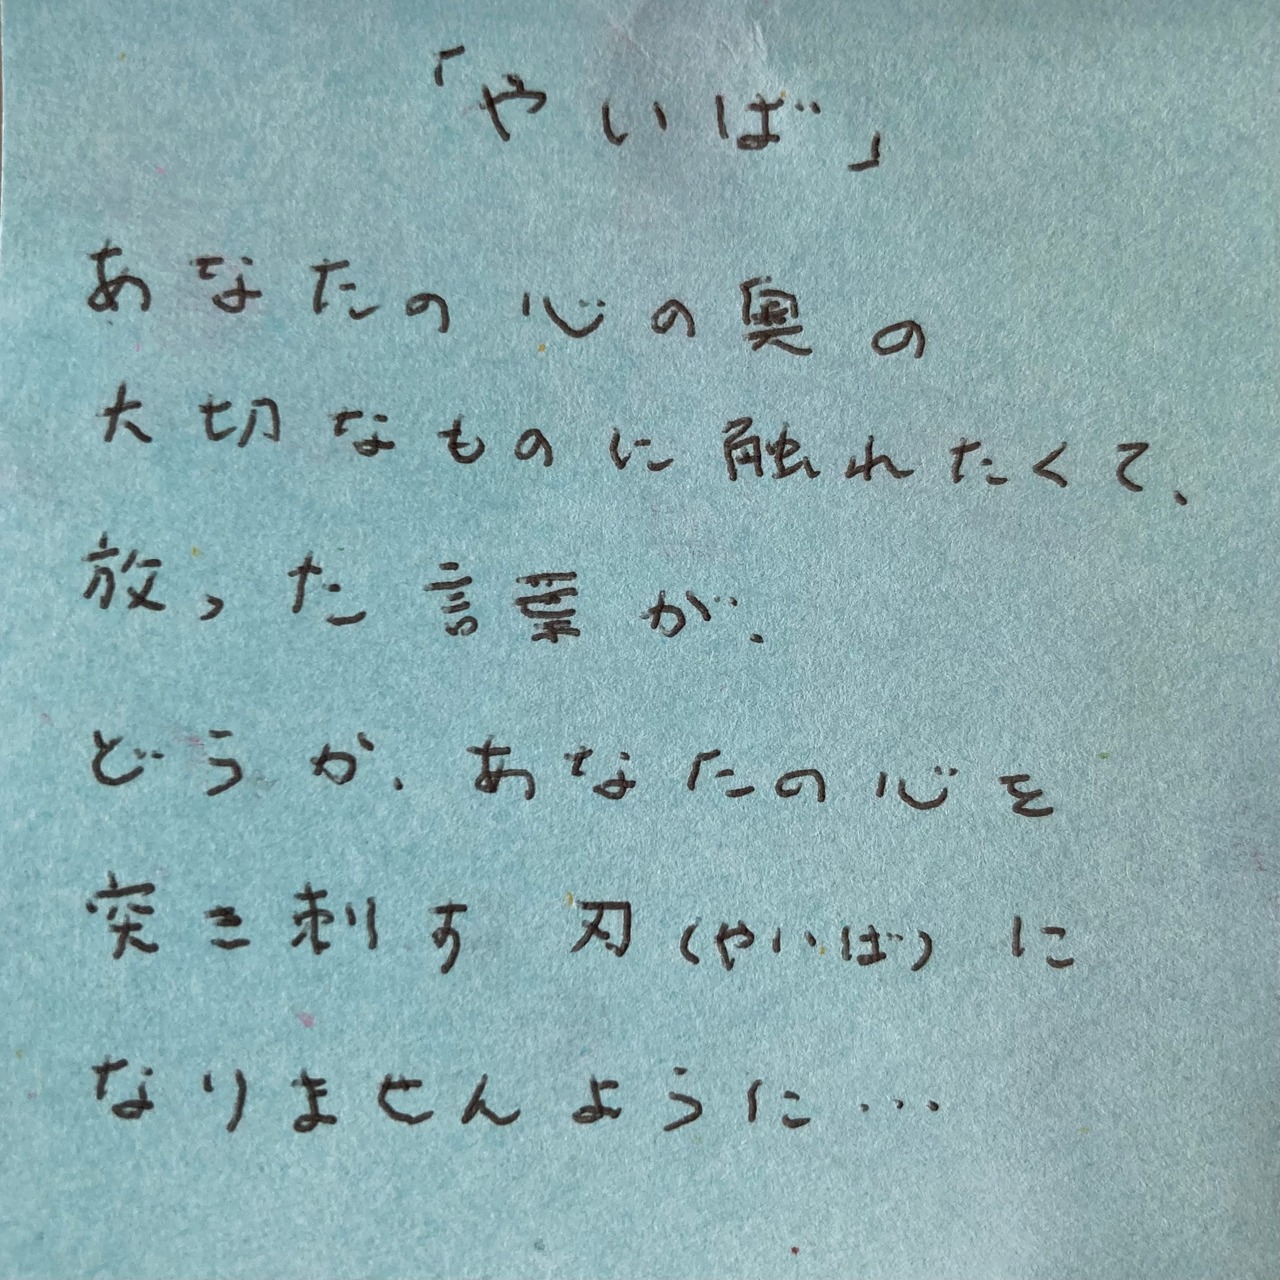 「やいば」
あなたの心の奥の
大切なものに触れたくて、
放った言葉が、
どうか、あなたの心を
突き刺す 刃(やいば)に
なりませんように…